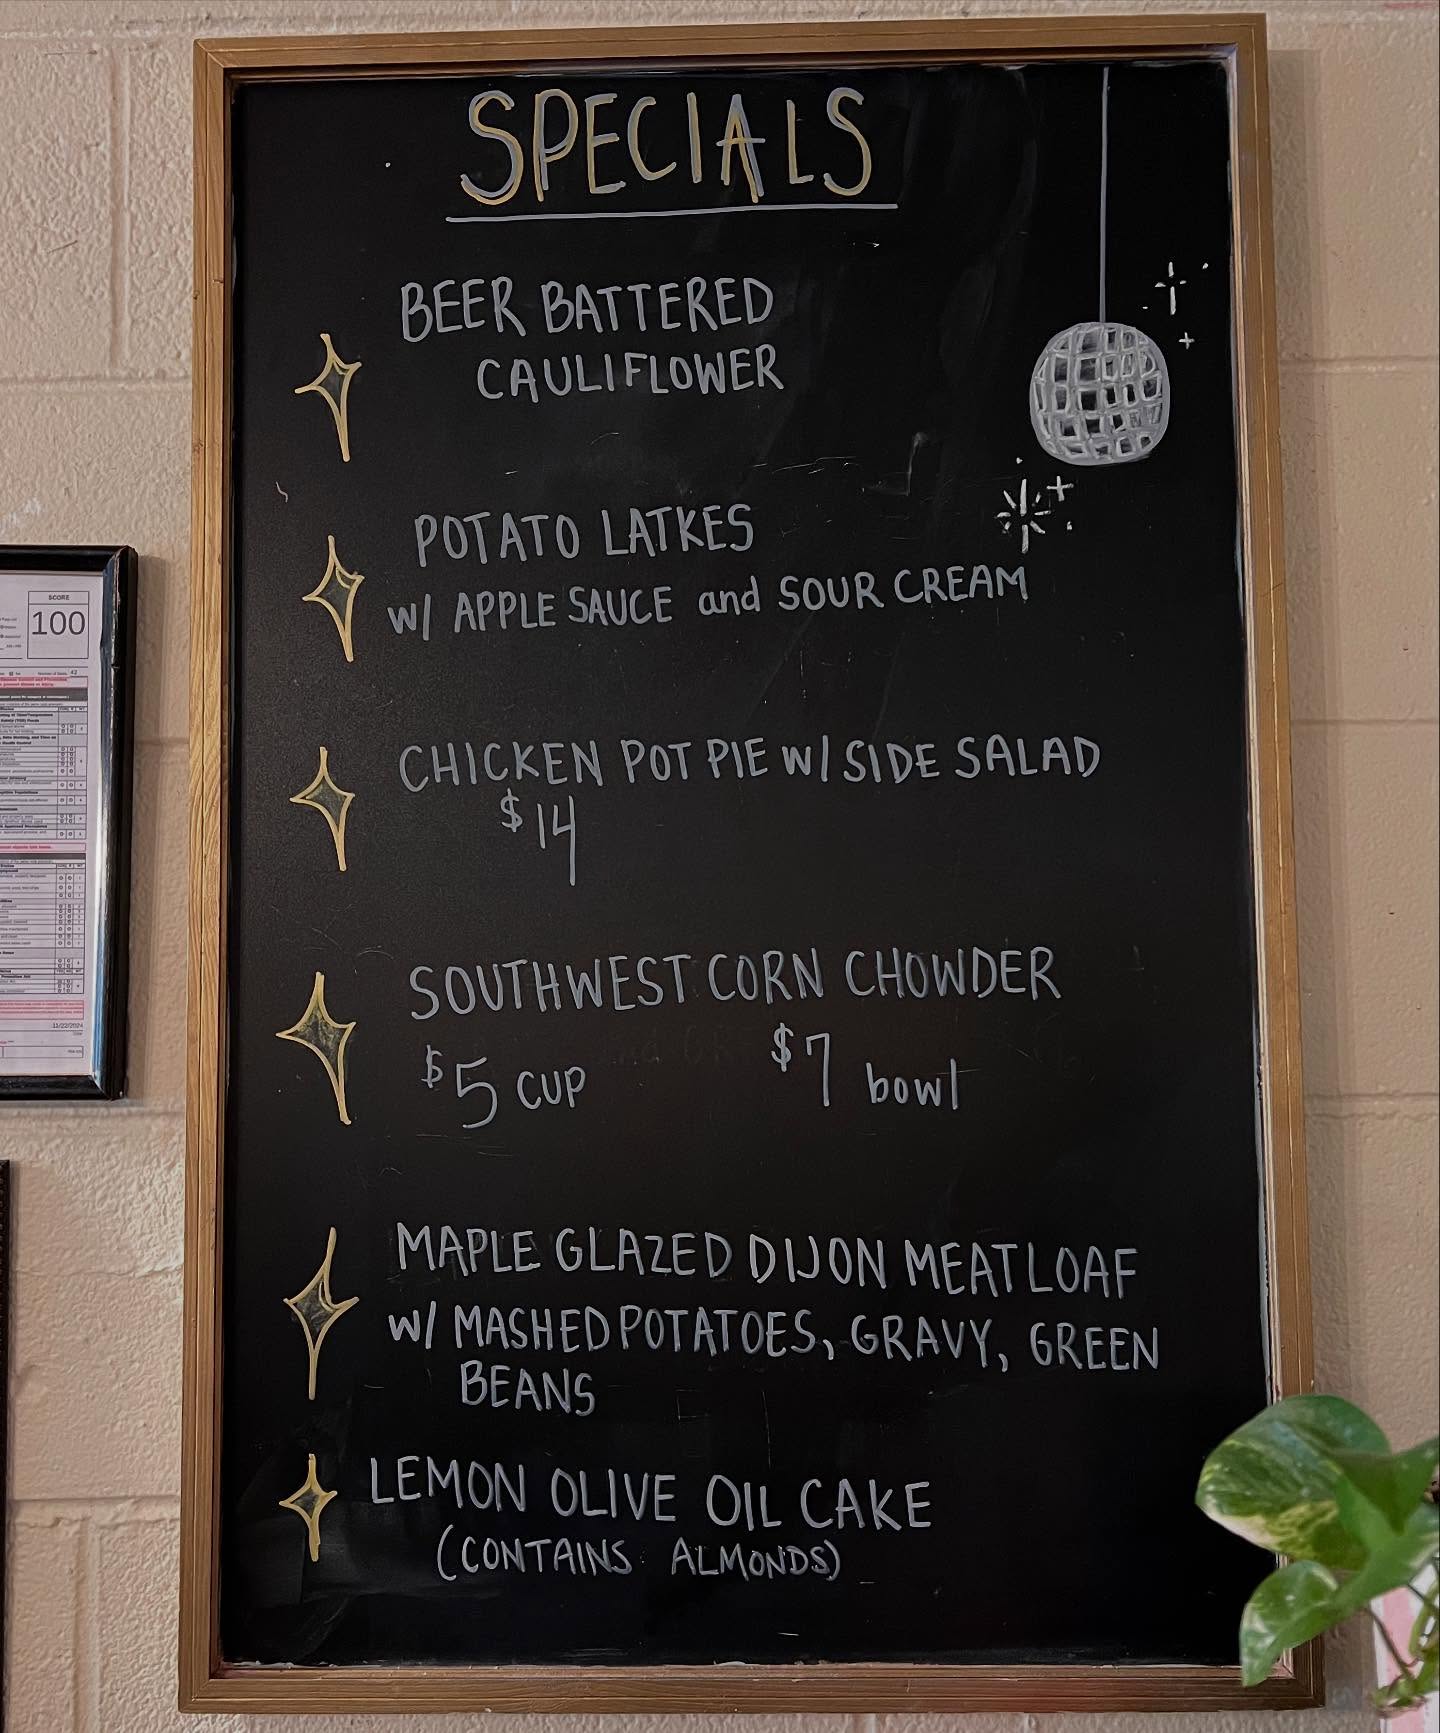 SPECIALS
BEER BATTERED
CAULIFLOWER
POTATO LATKES
w/ APPLE SAUCE and SOUR CREAM
CHICKEN POT PIE W/ SIDE SALAD
$14
SOUTHWEST CORN CHOWDER
$5 CUP $7 bowl
MAPLE GLAZED DIJON MEATLOAF
W/ MASHED POTATOES, GRAVY, GREEN
BEANS
LEMON OLIVE OIL CAKE
(CONTAINS ALMONDS)
SCORE
100
11/22/2024